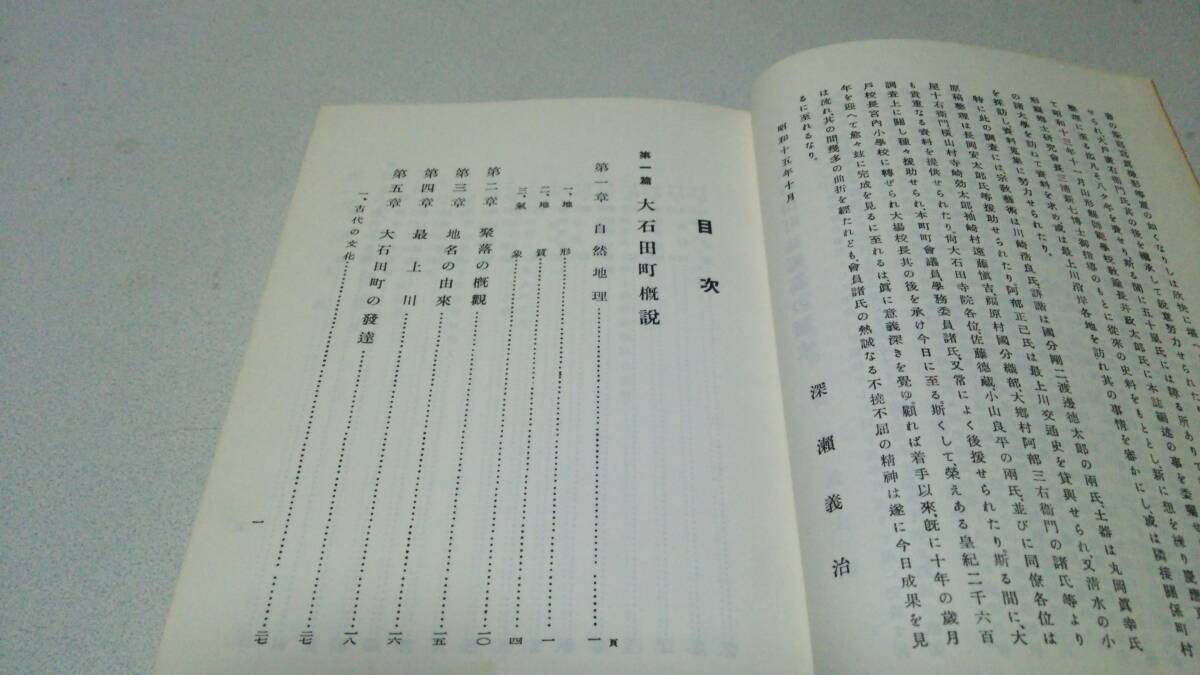 せられ大戸書右衛門氏其の後を繼承して鋭意努力せられたり
整理に著る此處に八ケ年を費せり斯る間に五十嵐氏には本誌編述の事を委囑せ
て昭和十三年十一月山形縣師範學校教諭長井政太郎氏に本誌編述の想を練り慶應
形縣郷土研究會長三浦新七博士御指導のもとに從來の史料をもととし新に隣接關係町村
の諸大学を訪ねて資料を求め或は最上川沿岸各地を訪れ其の事情を審かにし、或は
を探訪し資料蒐集に努力せられたり。
特に此の調査には宗教藝術は川崎浩良氏、誹諧は國分剛二、渡邊德太郎の兩氏、土器は丸岡眞幸氏
原稿整理は長岡安太郎氏等援助せられたり阿部正己氏は最上川交通史を貸與せられ、又淸水の小
屋十右衛門横山村寺崎効太郎袖崎村遠藤愼吉、福原村國分織部、大郷村阿部三右衞門の諸氏等より
も貴重なる資料を提供せられたり、尙大石田寺院各位、佐藤德藏小山良平の兩氏、並びに同僚各位は
調査上に關し種々援助せられ本町町會議員學務委員諸氏、又常によく後援せられたり。斯る間に、大
戸校長宮內小學校に轉ぜられ大場校長其の後を承け今日に至る。斯くして、榮えある皇紀二千六百
年を迎へて愈々玆に完成を見るに至れるは眞に意義深きを覺ゆ。顧れば着手以來、旣に十年の歲月
は流れ其の間幾多の曲折を經たれども、會員諸氏の熱誠なる不撓不屈の精神は遂に今日成果を見
るに至れるなり。
昭和十五年十月
深瀨義治
目次
第一篇 大石田町槪說
第一章 自然地理……一頁
一、地形……一
二、地質……四
三、氣象……一〇
第二章 聚落の槪觀……一五
第三章 地名の由來……一六
第四章 最上川……一八
第五章 大石田町の發達……二七
一、古代の文化……二七
一